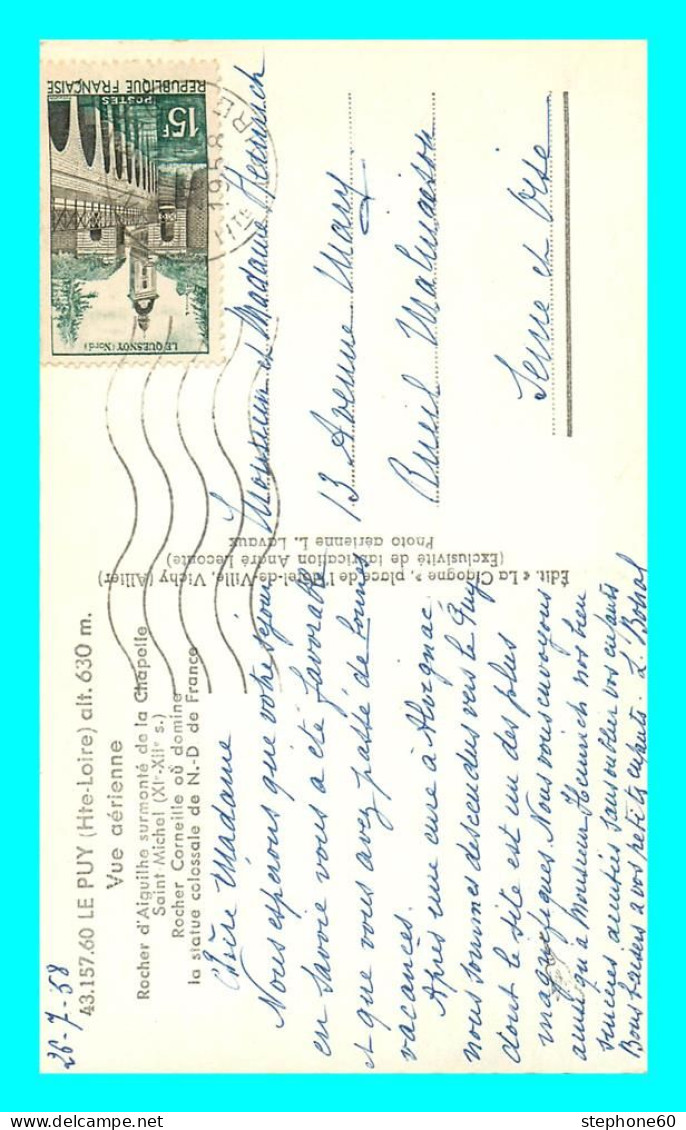 26-7-58
43.157.60 LE PUY (Hte-Loire) alt. 630 m.
Vue aérienne
Rocher d'Aiguilhe surmonté de la Chapelle
Saint-Michel (XIe-XIIe s.)
Rocher Corneille où domine
la statue colossale de N.-D de France
Chère Madame
Nous espérons que votre séjour
en Savoie vous a été favorable
et que vous avez passé de bonnes
vacances.
Après une cure à
nous sommes descendus vers le Puy
dont le site est un des plus
magnifiques. Nous vous envoyons
ainsi qu'à Monsieur Heinrich nos bien
sincères amitiés sans oublier vos enfants
Bons baisers à vos petits enfants.
Édit. « La Cigogne », place de l'Hôtel-de-Ville, Vichy (Allier)
(Exclusivité de fabrication André Leconte)
Photo aérienne L. Lavaux
REPUBLIQUE FRANÇAISE
POSTES
15F
LE QUESNOY (Nord)
1958
Monsieur et Madame Heinrich
13 Avenue Mary
Rueil Malmaison
Seine et Oise
stephone60